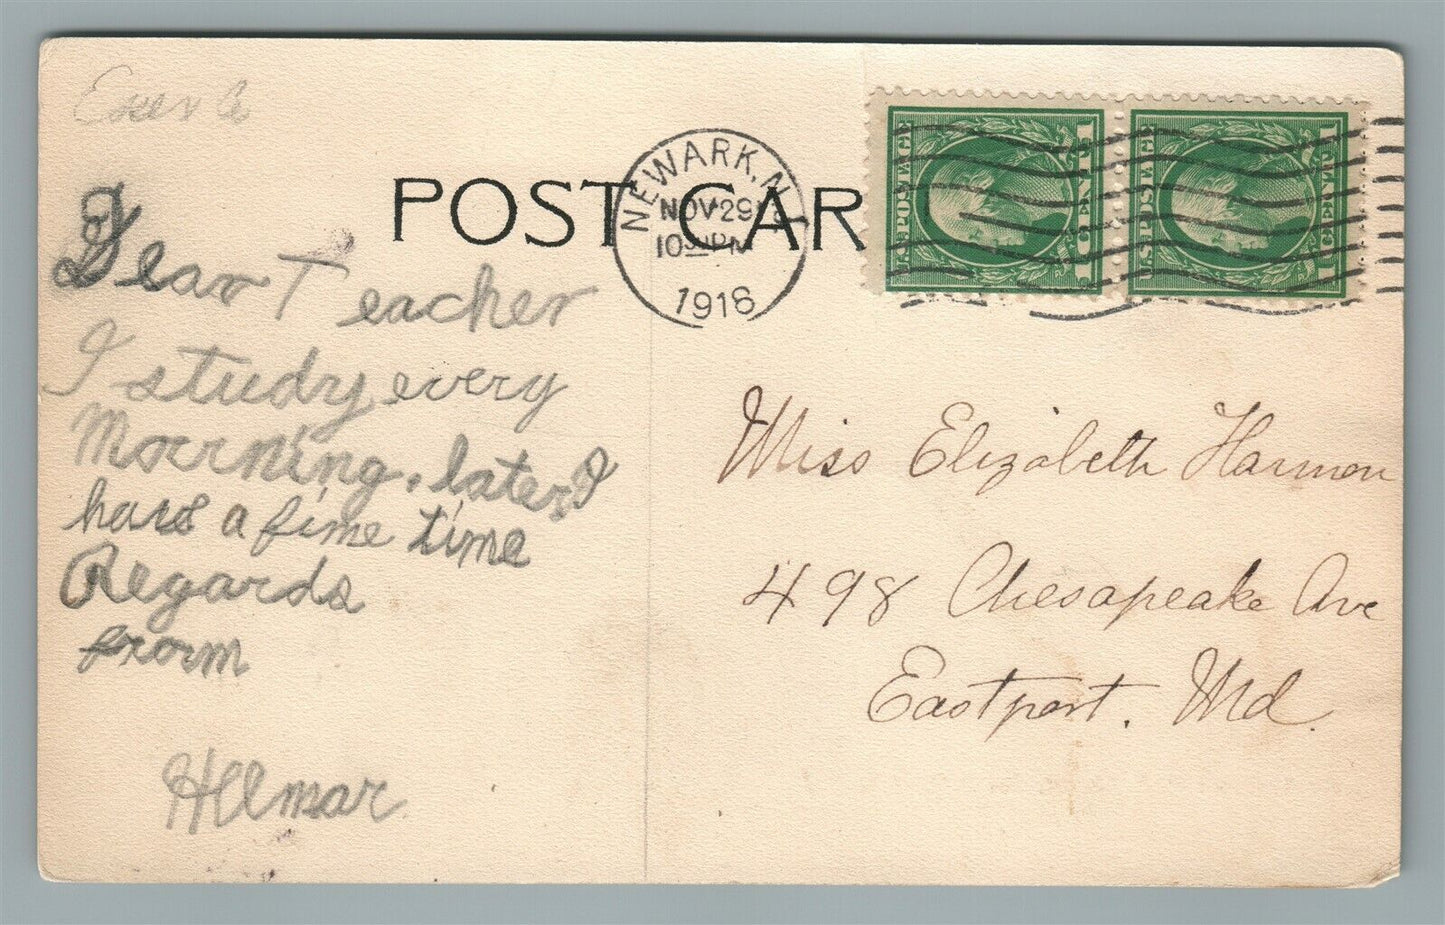 POST CAR
NEWARK, N.
NOV 29
10 PM
1916
U.S. POSTAGE
1 CENT 1
U.S. POSTAGE
1 CENT 1
Dear Teacher
I study every
Morrning. later I
hars a fime time
Regards
from
Helmar
Miss Elizabeth Harmon
498 Chesapeake Ave
Eastport. Md.